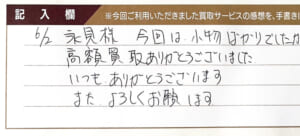 記入欄 ※今回ご利用いただきました買取サービスの感想を、手書き
6/2 永見様 今回は小物ばかりでしたが
高額買取ありがとうございました
いつもありがとうございます
また よろしくお願いします